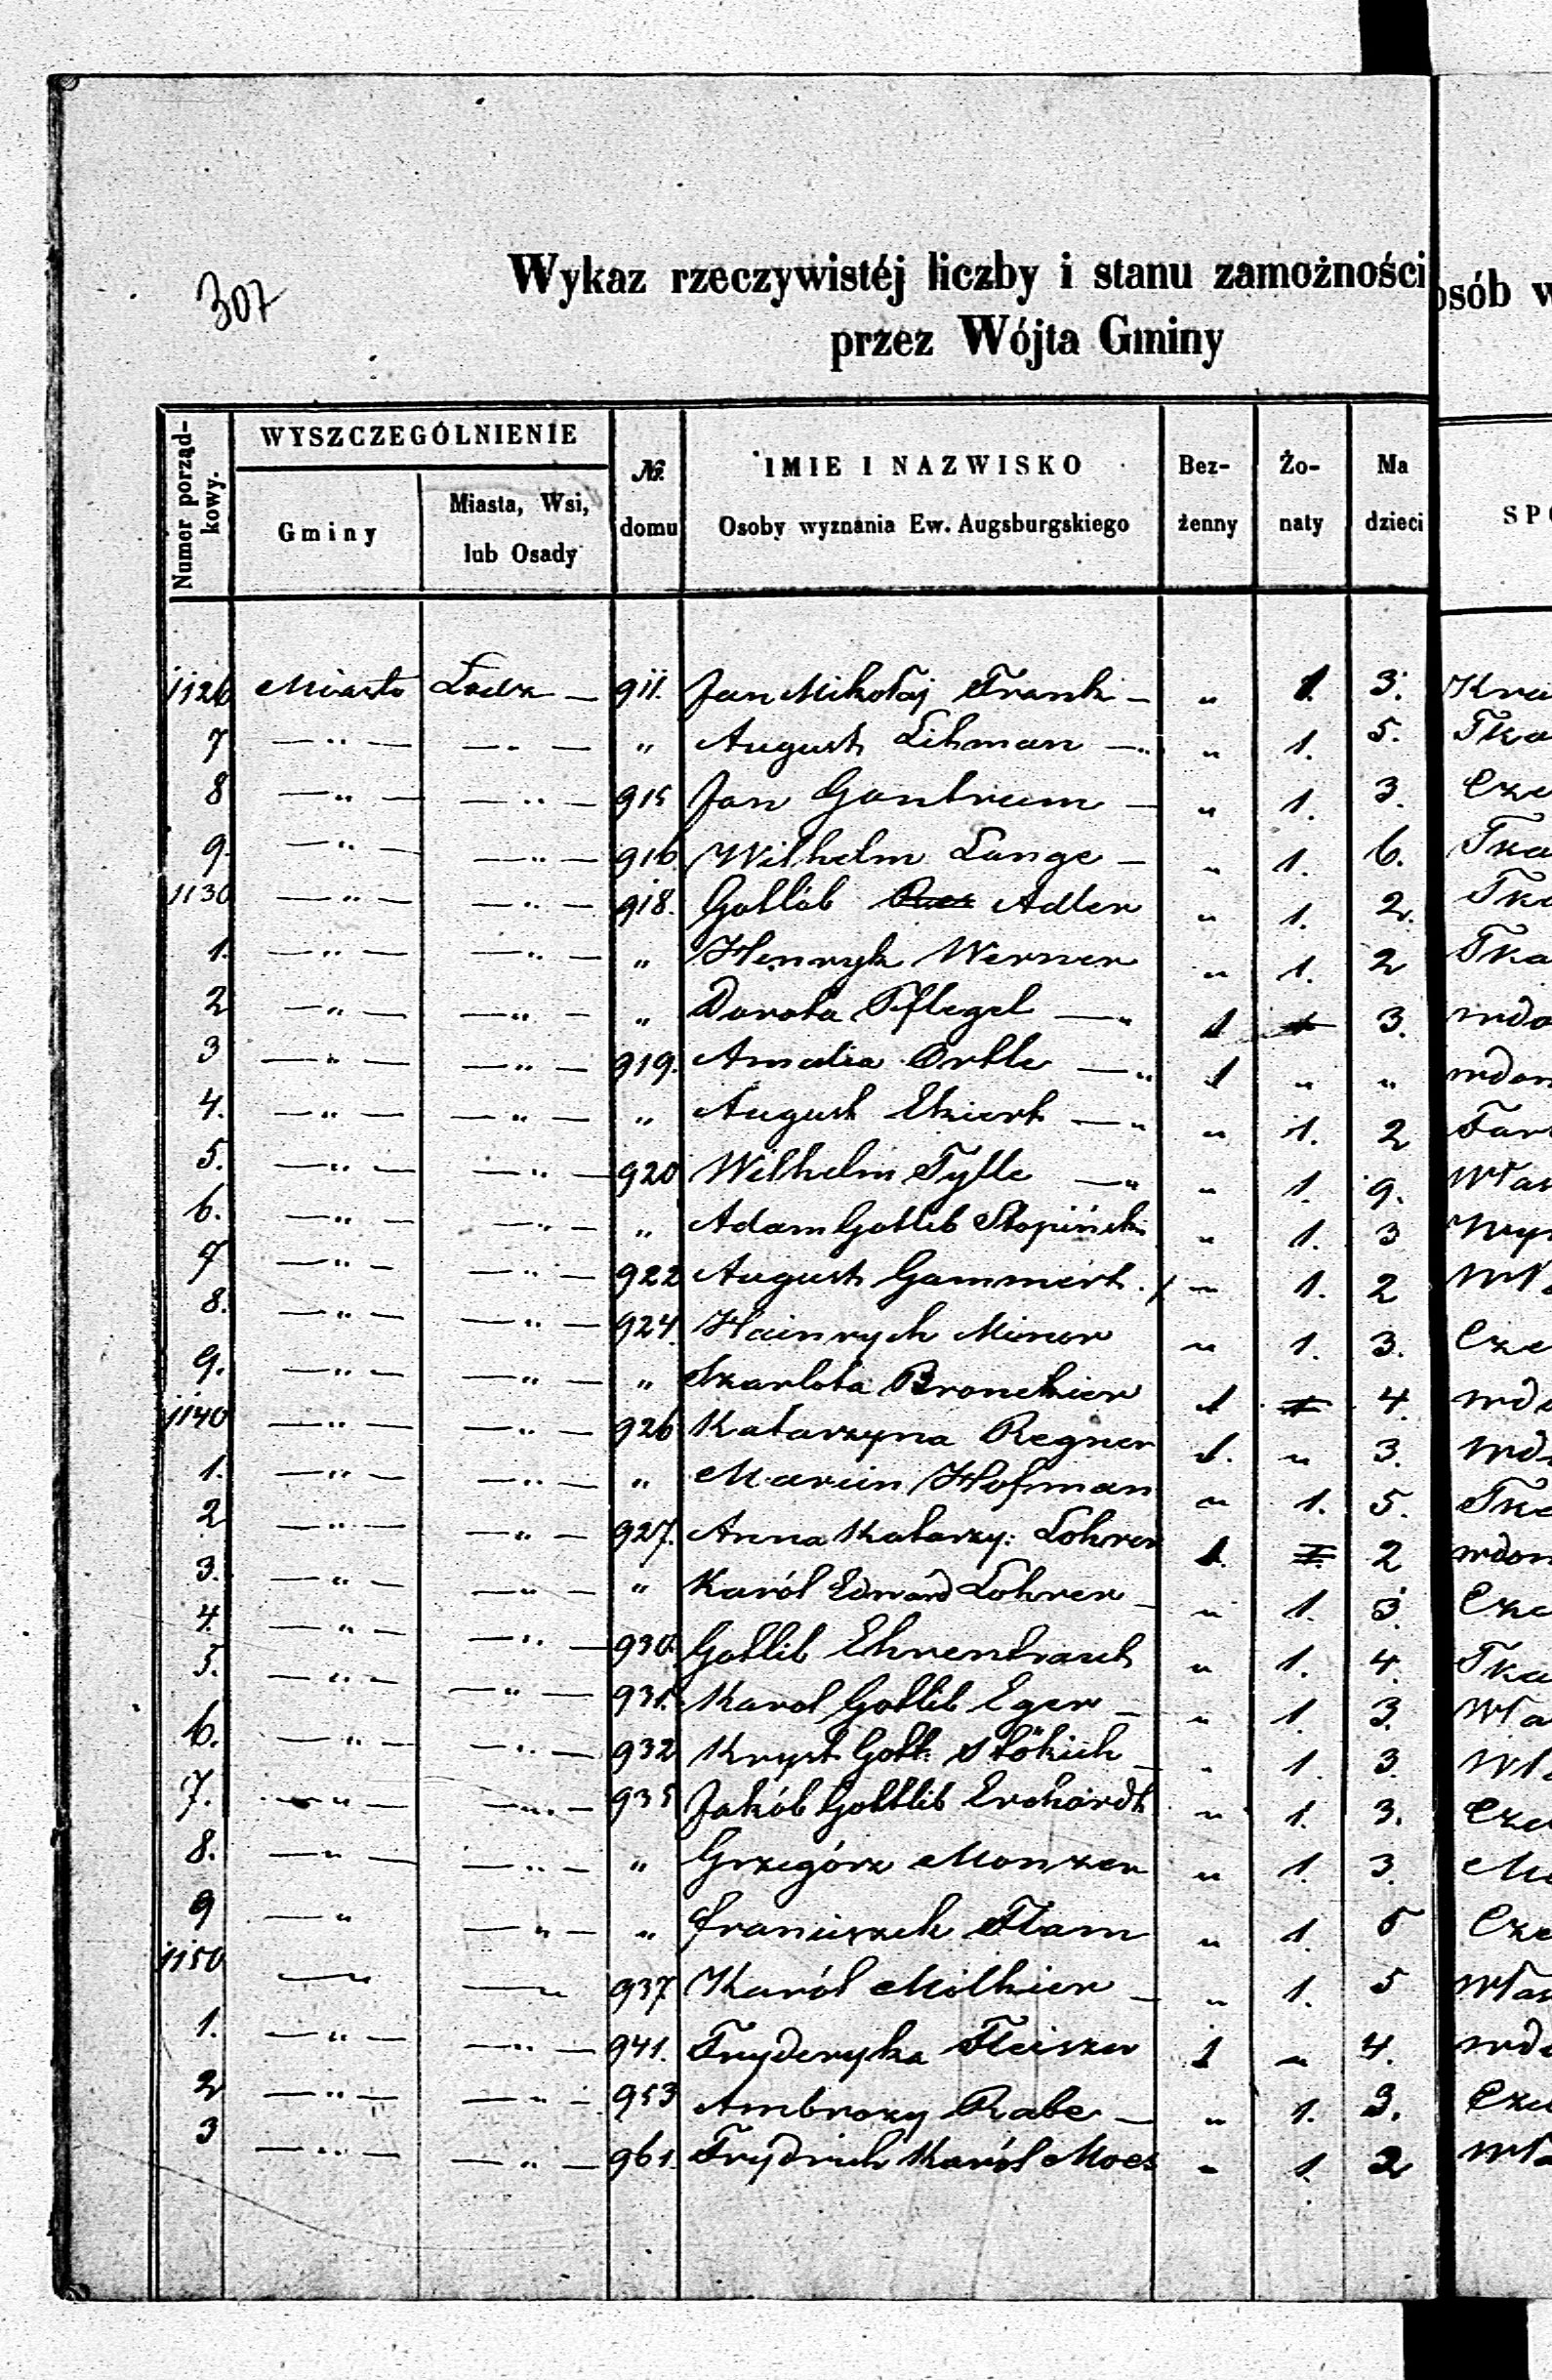 307
Wykaz rzeczywistéj liczby i stanu zamożności
osób w
przez Wójta Gminy
Numer porząd-kowy.
WYSZCZEGÓLNIENIE
Gminy
Miasta, Wsi, lub Osady
№ domu
IMIE I NAZWISKO
Osoby wyznania Ew. Augsburgskiego
Bez-żenny
Żo-naty
Ma dzieci
SPO
1126 Miasto Łódź — 911. Jan Mikołaj Frank — " 1. 3. Kra
7 — " — — " — " August Lihman — " " 1. 5. Tka
8 — " — — " — 915 Jan Gantrum — " 1. 3. Cze
9. — " — — " — 916 Wilhelm Lange — " 1. 6. Tka
1130 — " — — " — 918. Gotlib Adler " 1. 2. Tka
1. — " — — " — " Henryk Werner " 1. 2 Tka
2 — " — — " — " Dorota Pflegel — " 1 1 3. wdo
3 — " — — " — 919. Amalia Ortle — " 1 " " wdow
4. — " — — " — " August Ekiert — " " 1. 2 Far
5. — " — — " — 920 Wilhelm Tylle — " " 1. 9. Wła
6. — " — — " — " Adam Gotlib Stopiński " 1. 3 Wyr
7 — " — — " — 922 August Gammert. " 1. 2 Wła
8. — " — — " — 924. Hainrych Minor " 1. 3. Cze
9. — " — — " — " Szarlota Bronckier 1 1 4. wdo
1140 — " — — " — 926 Katarzyna Regner 1. " 3. wdo
1. — " — — " — " Marcin Hofman " 1. 5. Tka
2 — " — — " — 927. Anna Katarzy: Lohrer 1. 1. 2 wdow
3. — " — — " — " Karól Edward Lohrer — " 1. 3 Cze
4. — " — — " — 930. Gotlib Ehrentraut " 1. 4. Tka
5. — " — — " — 931. Karol Gotlib Eger — " 1. 3. Wła
6. — " — — " — 932 Kryst: Gotl: — " 1. 3. Wła
7. — " — — " — 935 Jakób Gottlib Erchardt " 1. 3. Cze
8. — " — — " — " Grzegórz Monzer " 1. 3. Ma
9 — " — " — " Franciszek Flam " 1. 5 Cze
1150 — " — " 937 Karól Milkier — " 1. 5 Wła
1. — " — — " — 941. Fryderyka Fleiszer 1 " 4. wdo
2 — " — — " — 953 Ambrozy Rabe — " 1. 3. Cze
3 — " — — " — 961. Frydrich Karól Moes " 1. 2 Wła